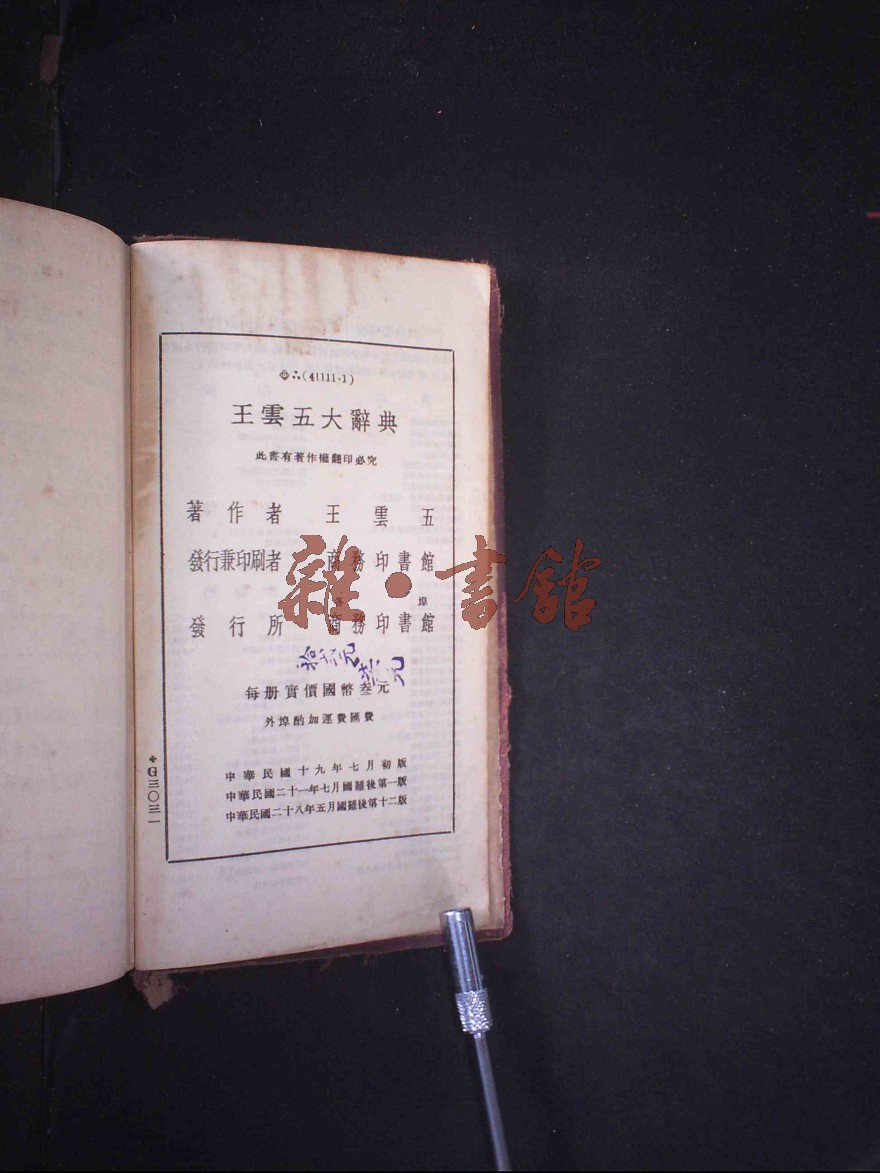 (41111·1)
王雲五大辭典
此書有著作權翻印必究
著作者 王雲五
發行兼印刷者 商務印書館
各埠
發行所 商務印書館
每册實價國幣叁元
外埠酌加運費匯費
中華民國十九年七月初版
中華民國二十一年七月國難後第一版
中華民國二十八年五月國難後第十二版
G三〇三一
雜·書館